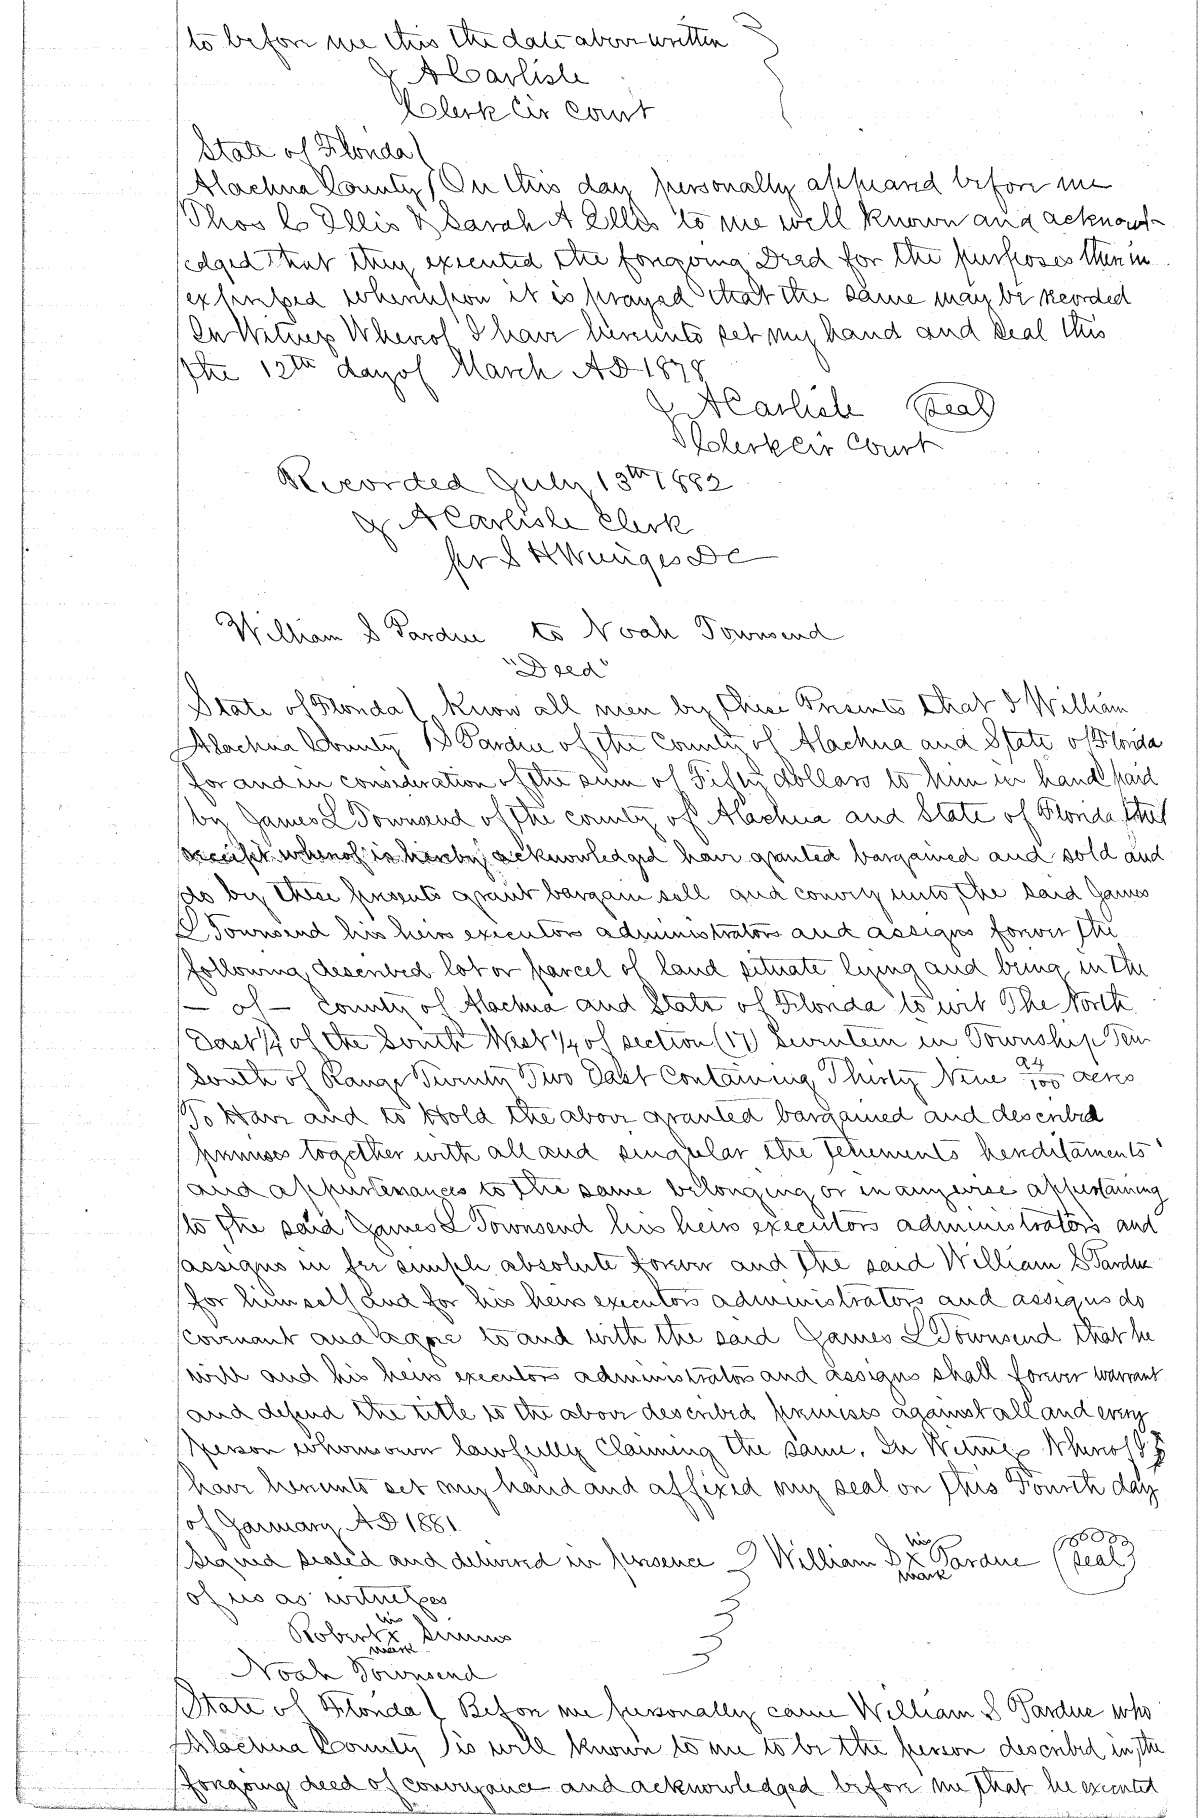 to before me this the date above written
J A Carlisle
Clerk Cir Court
State of Florida
Alachua County On this day personally appeared before me
Thos C Ellis & Sarah A Ellis to me well known and acknowl-
edged that they executed the foregoing Deed for the purposes therein
expressed whereupon it is prayed that the same may be recorded
In Witness Whereof I have hereunto set my hand and seal this
the 12th day of March AD 1878
J A Carlisle Seal
Clerk Cir Court
Recorded July 13th 1882
J A Carlisle Clerk
pr S H Wienges DC
William S Pardue to Noah Townsend
"Deed"
State of Florida Know all men by these Presents that I William
Alachua County S Pardue of the County of Alachua and State of Florida
for and in consideration of the sum of Fifty dollars to him in hand paid
by James L Townsend of the county of Alachua and State of Florida the
receipt whereof is hereby acknowledged have granted bargained and sold and
do by these presents grant bargain sell and convey unto the said James
L Townsend his heirs executors administrators and assigns forever the
following described lot or parcel of land situate lying and being in the
— of — county of Alachua and State of Florida to wit The North
East 1/4 of the South West 1/4 of section (17) Seventeen in Township Ten
South of Range Twenty Two East Containing Thirty Nine 94/100 acres
To Have and to Hold the above granted bargained and described
premises together with all and singular the tenements hereditaments
and appurtenances to the same belonging or in anywise appertaining
to the said James L Townsend his heirs executors administrators and
assigns in fee simple absolute forever and the said William S Pardue
for himself and for his heirs executors administrators and assigns do
covenant and agree to and with the said James L Townsend that he
will and his heirs executors administrators and assigns shall forever warrant
and defend the title to the above described premises against all and every
person whomsoever lawfully claiming the same. In Witness Whereof I
have hereunto set my hand and affixed my seal on this Fourth day
of January AD 1881
Signed sealed and delivered in presence William S his x mark Pardue Seal
of us as witnesses
Robert his x mark Simms
Noah Townsend
State of Florida Before me personally came William S Pardue who
Alachua County is well known to me to be the person described in the
foregoing deed of conveyance and acknowledged before me that he executed